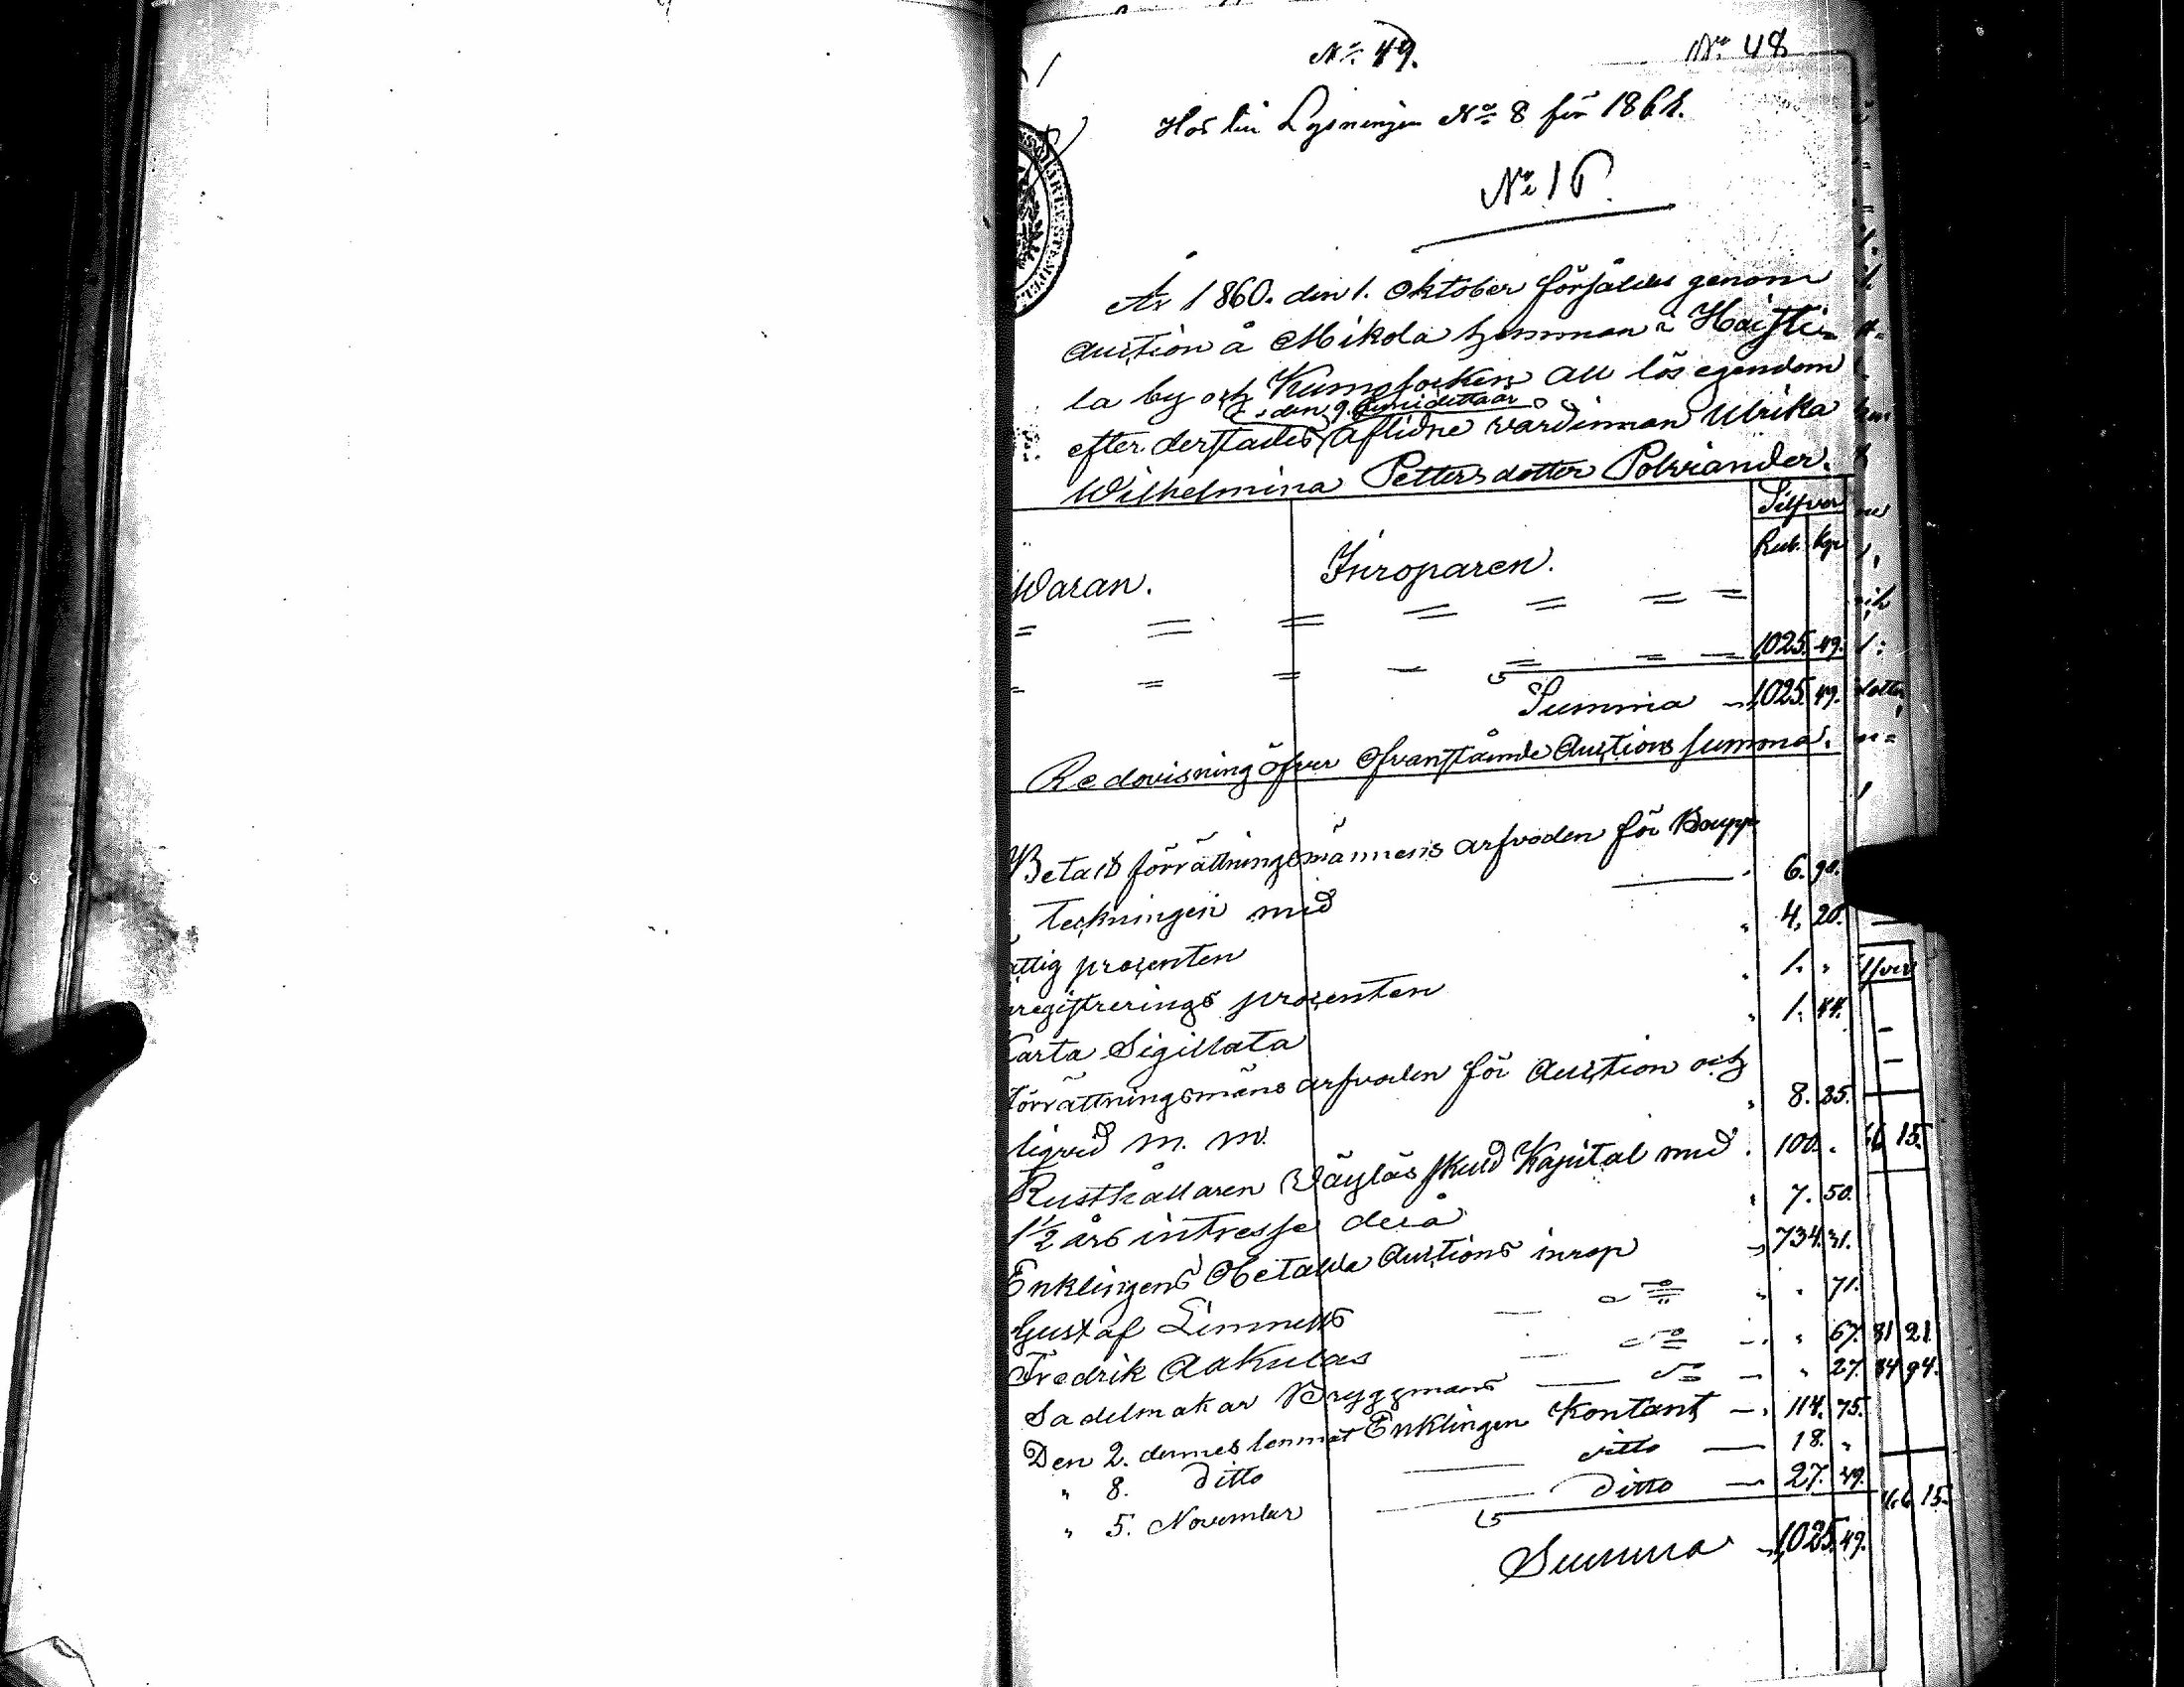 No 49.
No 48
Hör till Lysningen No 8 för 1861.
No 16.
År 1860. den 1. Oktober försåldes genom
auction å Mikola hemman i Haisti=
la by och Kumo socken all lösegendom
den 9. Junii detta år
efter derstädes aflidne värdinnan Ulrika
Wilhelmina Pettersdotter Polviander.
Silfver
Rub. kop
Waran. Inroparen.
= = = = = = =
1,025. 49.
= = = = = = =
Summa 1,025. 49.
Redovisning öfver Ofvanstående Auctions summa.
Betalt förrättningsmännens arfvoden för Boupp=
teckningen med 6. 90.
ättig procenten 4. 20.
registrerings procenten 1. "
Carta Sigillata 1. 44.
förrättningsmäns arfvoden för Auction och
liqvid m. m. 8. 25.
Rusthållaren Wäyläs skuld Kapital med 100. "
1½ års intresse derå 7. 50.
Enklingens Obetalda Auctions inrop 734. 31.
Gustaf Linnells " 71.
Fredrik Aakulas " 67.
Sadelmakar Bryggmans " 27.
Den 2. dennes lemnat Enklingen Kontant 114. 75.
" 8. ditto ditto 18. "
" 5. November ditto 27. 49.
Summa 1,025. 49.